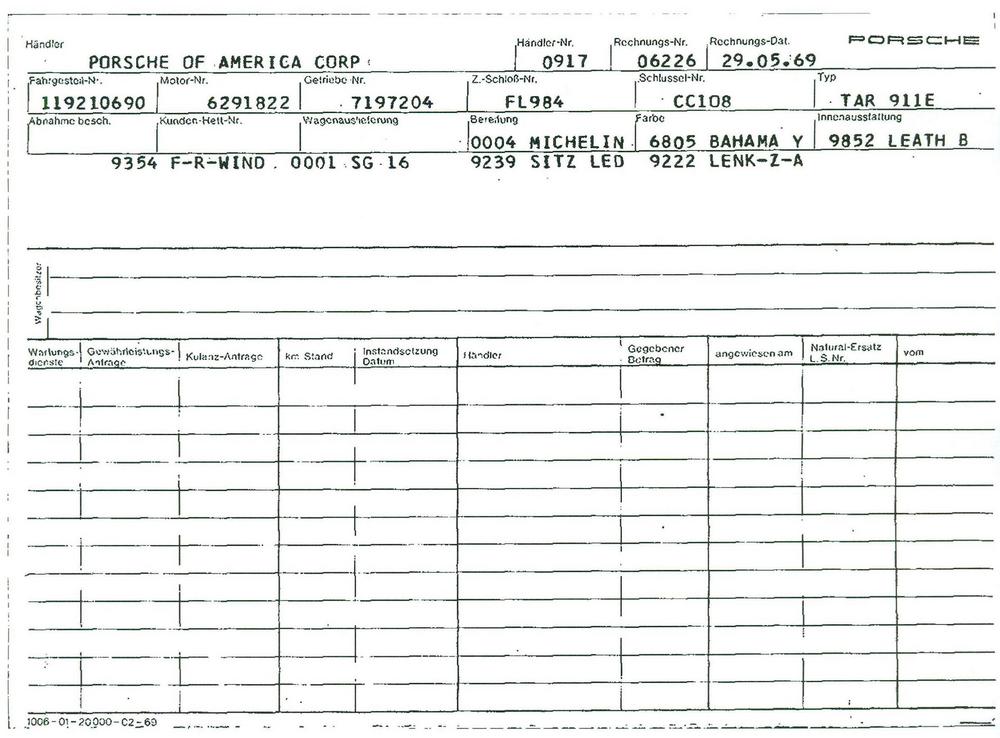 Händler Händler-Nr. Rechnungs-Nr. Rechnungs-Dat. PORSCHE
PORSCHE OF AMERICA CORP 0917 06226 29.05.69
Fahrgestell-Nr. Motor-Nr. Getriebe-Nr. Z.-Schloß-Nr. Schlüssel-Nr. Typ
119210690 6291822 7197204 FL984 CC108 TAR 911E
Abnahme besch. Kunden-Heft-Nr. Wagenauslieferung Bereifung Farbe Innenausstattung
0004 MICHELIN 6805 BAHAMA Y 9852 LEATH B
9354 F-R-WIND. 0001 SG 16 9239 SITZ LED 9222 LENK-Z-A
Wagenbesitzer
Wartungs- Gewährleistungs- Kulanz-Anträge km Stand Instandsetzung Händler Gegebener angewiesen am Natural-Ersatz vom
dienste Anträge Datum Betrag L.S.Nr.
1006-01-20000-02-69